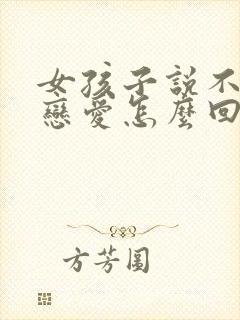 女孩子說不
戀愛怎麼回
方芳圓